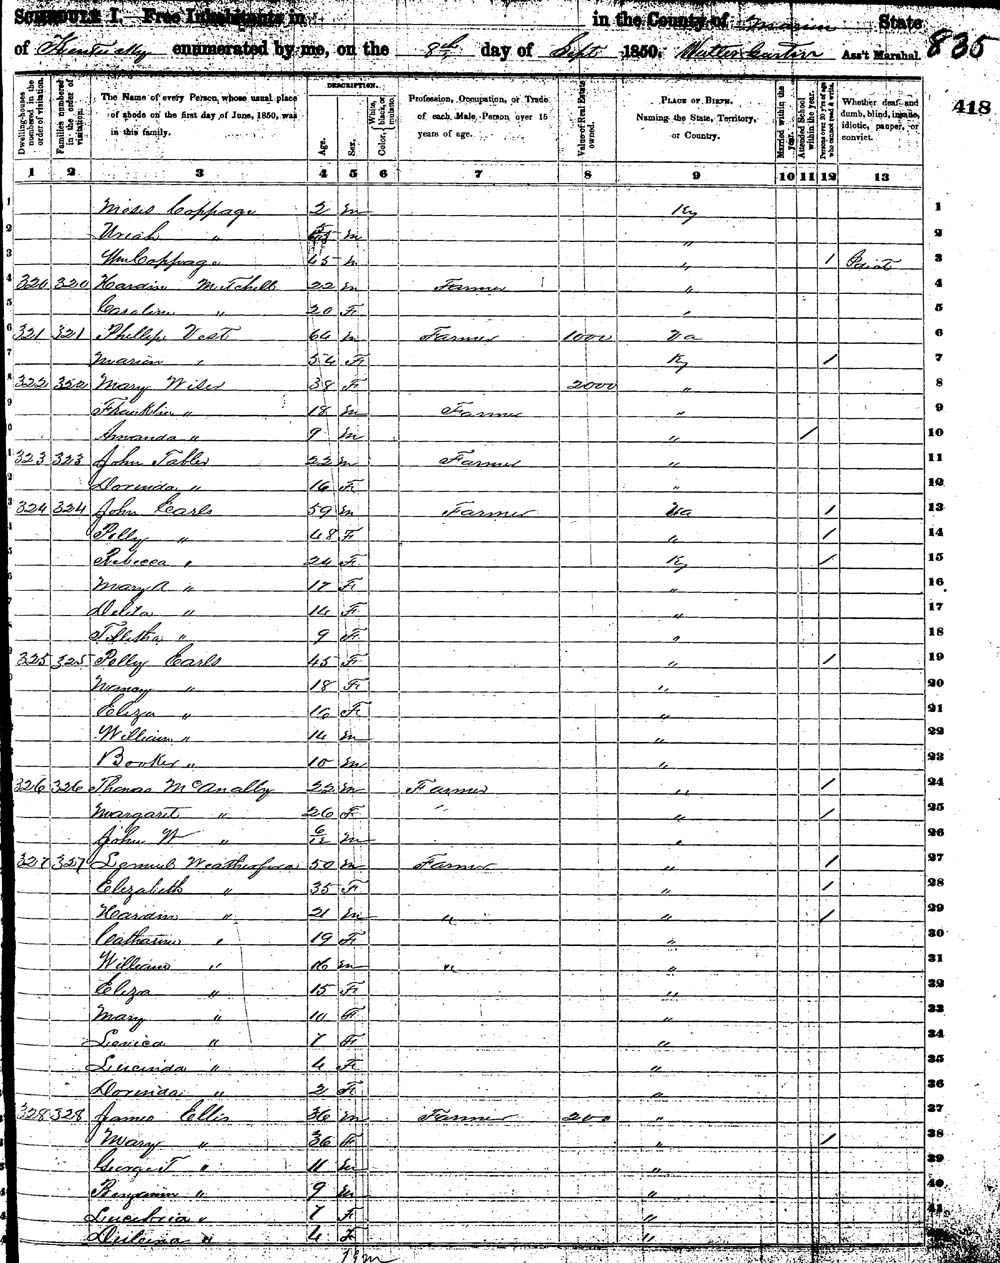 SCHEDULE I.—Free Inhabitants in in the County of Marion State
of Kentucky enumerated by me, on the 8th day of Sept 1850. Ass't Marshal. 835
418
Dwelling-houses numbered in the order of visitation.
Families numbered in the order of visitation.
The Name of every Person, whose usual place of abode on the first day of June, 1850, was in this family.
DESCRIPTION.
Age.
Sex.
Color, White, black, or mulatto.
Profession, Occupation, or Trade of each Male Person over 15 years of age.
Value of Real Estate owned.
PLACE OF BIRTH. Naming the State, Territory, or Country.
Married within the year.
Attended School within the year.
Persons over 20 y'rs of age who cannot read & write.
Whether deaf and dumb, blind, insane, idiotic, pauper, or convict.
1 2 3 4 5 6 7 8 9 10 11 12 13
Moses Coppage 2 m Ky 1
2 Uriah " m " 2
3 Wm Coppage 45 m " / Idiot 3
4 320 320 Hardin Mitchell 22 m Farmer " 4
5 Caroline " 20 F " 5
6 321 321 Phillip Vest 64 m Farmer 1000 Va 6
7 Marian " 54 F Ky / 7
8 322 350 Mary Wiser 38 F 2000 " 8
9 Franklin " 18 m Farmer " 9
0 Amanda " 9 m " / 10
1 323 323 John Tabler 22 m Farmer " 11
2 Dorinda " 16 F " 12
3 324 324 John Earls 59 m Farmer Va / 13
4 Polly " 48 F " / 14
5 Rebecca " 24 F Ky / 15
6 Mary A " 17 F " 16
7 Delila " 14 F " 17
Tilitha " 9 F " 18
325 325 Polly Earls 45 F " / 19
Nancy " 18 F " 20
Eliza " 16 F " 21
William " 14 m " 22
Booker " 10 m " 23
326 326 Thomas McAnally 22 m Farmer " / 24
Margaret " 26 F " " / 25
John W " 6/12 m " 26
327 327 Lemuel 50 m Farmer " / 27
Elizabeth " 35 F " / 28
Hardin " 21 m " " / 29
Catharine " 19 F " 30
William " 16 m " " 31
Eliza " 15 F " 32
Mary " 10 F " 33
Levica " 7 F " 34
Lucinda " 4 F " 35
Dorinda " 2 F " 36
328 328 James Ellis 36 m Farmer 200 " 37
Mary " 36 F " / 38
George T " 11 m " 39
Benjamin " 9 m " 40
" 7 F " 41
Dulcina " 4 F "
19m